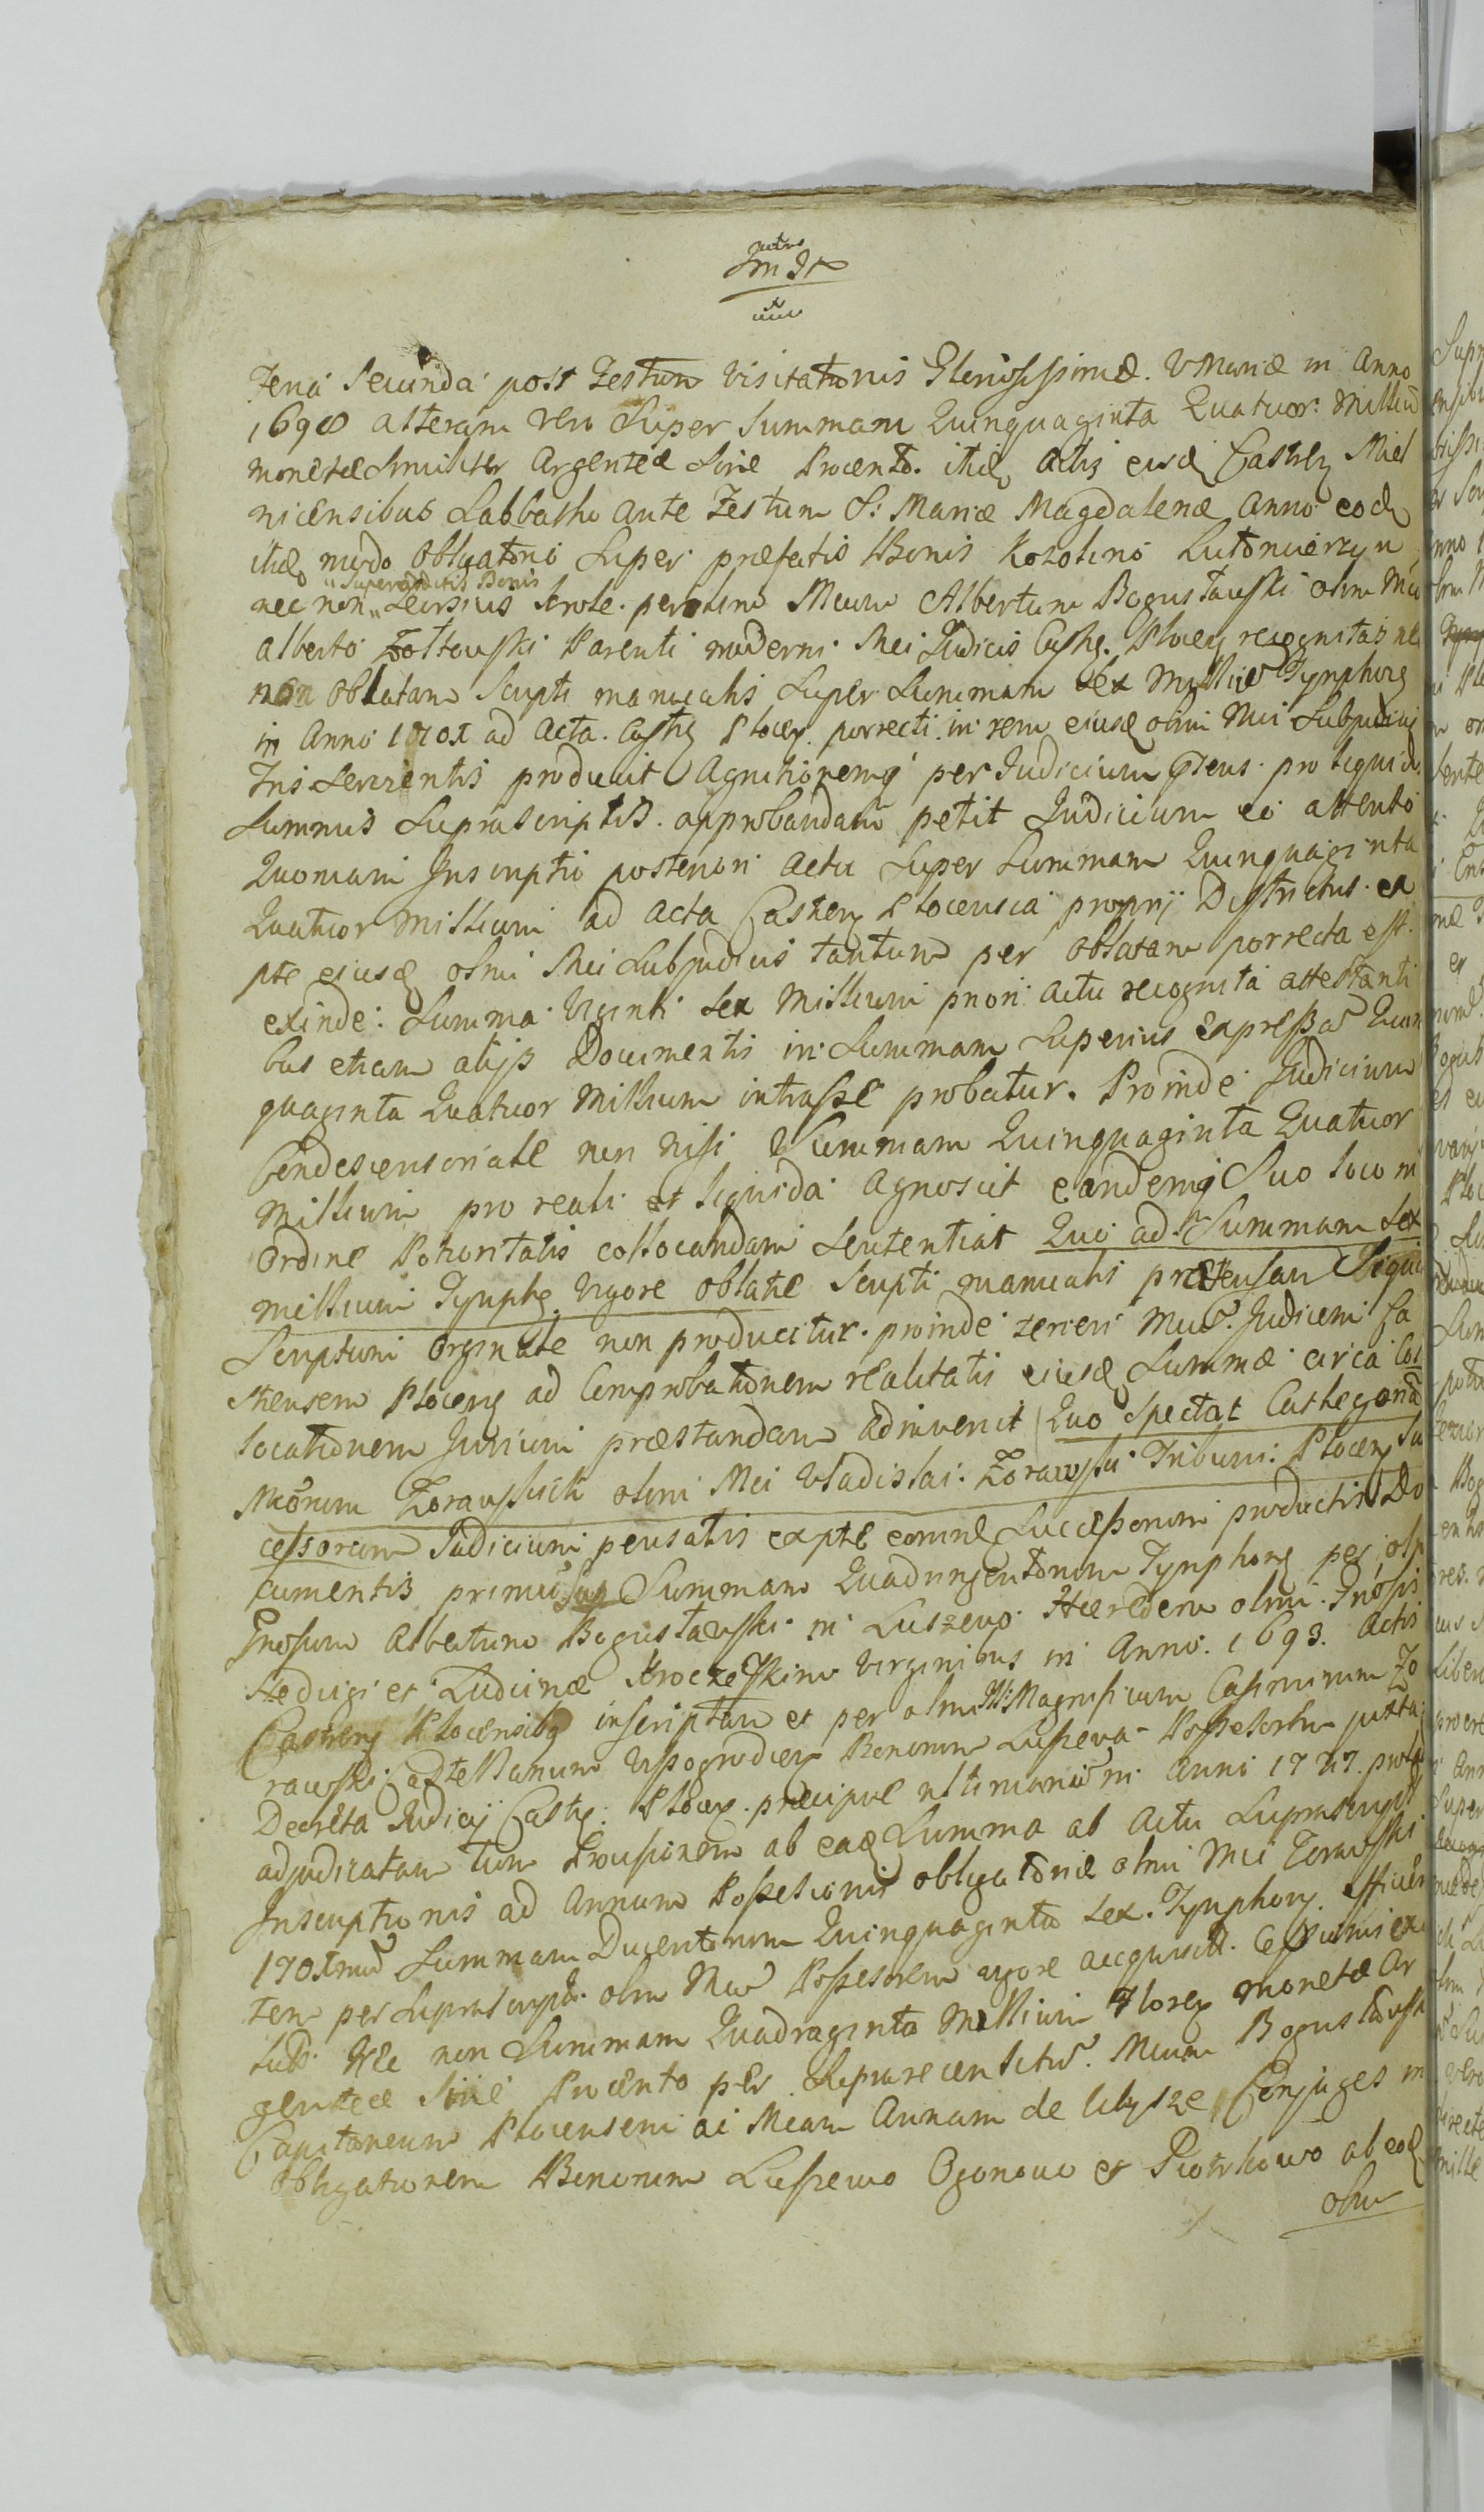 Feria Secunda post Festum Visitationis Gloriosissimæ. V Mariæ in Anno
1698 alteram vero Super Summam Quinquaginta Quatuor: Milliū
monetæ similiter Argenteæ Sine Procento. itid̄ Actis eiusd̄ Castren̄ Miel
nicensibus Sabbatho ante Festum S: Mariæ Magdalenæ Anno eod̄
itid̄ modo Obligatorio Super præfatis Bonis Kozolino Lutomierzyn
"Superadditis Bonis
nec non " Seorsius Srole. per olim Mcum Albertum Bogustawski olim Mco
Alberto Zoltowski Parenti moderni Mci Judicis Castr. Plocen̄ recognitas nec
non Oblatam Scripti manualis Super Summam Sex Milliū Tymphor̄
in Anno 1701 ad Acta. Castr̄ Plocen̄. porrecti. in rem eiusd̄ olim Mci Subjudicis
Inservientis produxit Agnitionemq̄ per Judicium pro liquid.
Summis Suprascriptis. approbandam petit Judicium eo attento
Quoniam Inscriptio posteriori Actu Super Summam Quinquaginta
Quatuor Millium ad Acta Castren̄ Plocensia proprij Districtus ex
pte eiusd̄ olim Mci Subjudicis tantum per Oblatam porrecta est.
exinde: Summa Viginti Sex Millium priori Actu recognita attestanti
bus etiam alijs Documentis in Summam Superius expressā Quin
quaginta Quatuor Millium intrasse probatur. Proinde Judicium
Condescensoriale non nisi Summam Quinquaginta Quatuor
Millium pro reali et liquida agnoscit eandemq̄ Suo loco in
Ordine Potioritatis collocandam Sententiat Quo ad Summam Sex
millium Tymph. Vigore oblatæ Scripti manualis prætensam Siqui
Scriptum Orginale non producitur. proinde Mcū Judicem Ca
strensem Plocen̄ ad Comprobationem realitatis eiusd̄ Summæ circa Col
locationem Jurium præstandam adinvenit Quo Spectat Cathegoriā
Mcorum Zorawskich olim Mci Vladislai. Zorawski Tribuni: Plocen̄ Su
cessorum Judicium pensatis ex pte eorund̄ Successorum productis Do
cumentis primū Summam Quadringentorum Tymphor̄ per olim
Gnosum Albertum Bogustawski in Luszewo Hæredem olim Gnosis
Hedvigi et Ludvinæ Kroczeskim Virginibus in Anno. 1693. Actis
Castren̄ Plocensibꝫ inscriptam et per olim Magnificum Casimirum Zo
rawski Castellanum Wyszogrodien̄ Bonorum Luszewa Possessorem juxta
Decreta Judicij Castr̄: Plocen̄. præcipue ultimarium in Anni 1727.
adjudicatam tum Provisionem ab ead̄ Summa ab Actu Suprascripti
Inscriptionis ad Annum Possessionis obligatoriæ olim Mci Zorawski
1701mū Summam Ducentorum Quinquaginta Sex. Tymphor̄. efficien
tem per Suprascript. olim Mcū Possessorem
Nec non Summam Quadraginta Millium Floren̄ monetæ Ar
genteæ Sine Procento per Suprarecensitū. Mcum Bogustawski
Capitaneum Plocensem ac Mcam Annam de Conjuges in
Obligationem Bonorum Luszewo Ogonowo et Piotrkowo ab eod̄
olim